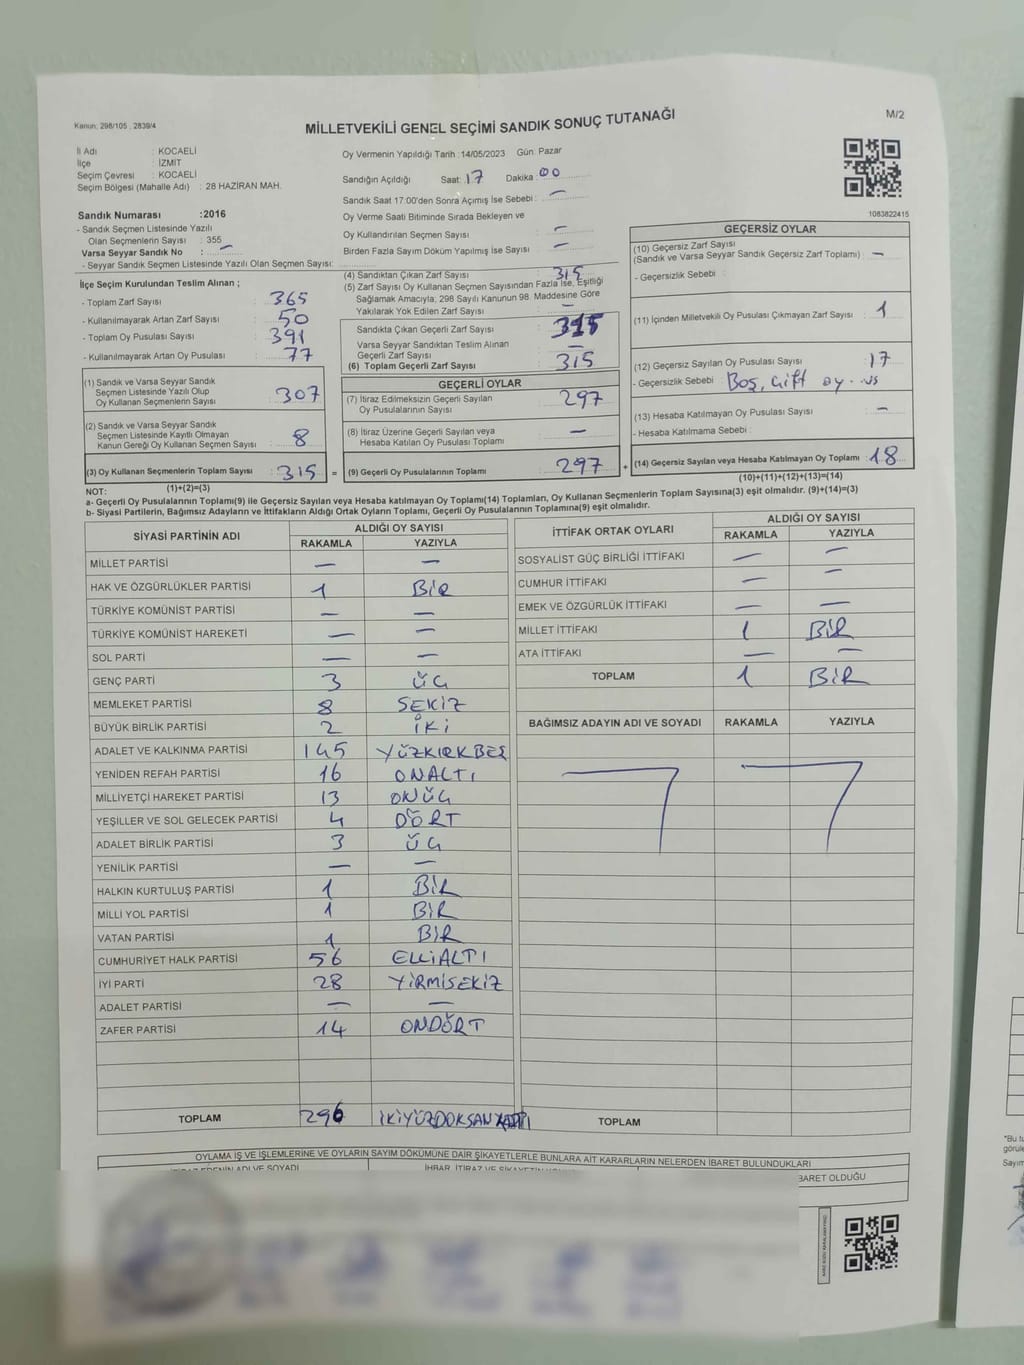 Kanun; 298/105 , 2839/4
MİLLETVEKİLİ GENEL SEÇİMİ SANDIK SONUÇ TUTANAĞI
M/2
İl Adı : KOCAELİ
İlçe : İZMİT
Seçim Çevresi : KOCAELİ
Seçim Bölgesi (Mahalle Adı) : 28 HAZİRAN MAH.
Sandık Numarası :2016
- Sandık Seçmen Listesinde Yazılı
Olan Seçmenlerin Sayısı : 355
Varsa Seyyar Sandık No : —
- Seyyar Sandık Seçmen Listesinde Yazılı Olan Seçmen Sayısı:
İlçe Seçim Kurulundan Teslim Alınan ;
- Toplam Zarf Sayısı : 365
- Kullanılmayarak Artan Zarf Sayısı : 50
- Toplam Oy Pusulası Sayısı : 391
- Kullanılmayarak Artan Oy Pusulası : 77
(1) Sandık ve Varsa Seyyar Sandık
Seçmen Listesinde Yazılı Olup
Oy Kullanan Seçmenlerin Sayısı : 307
(2) Sandık ve Varsa Seyyar Sandık
Seçmen Listesinde Kayıtlı Olmayan
Kanun Gereği Oy Kullanan Seçmen Sayısı : 8
(3) Oy Kullanan Seçmenlerin Toplam Sayısı : 315 =
(1)+(2)=(3)
Oy Vermenin Yapıldığı Tarih :14/05/2023 Gün: Pazar
Sandığın Açıldığı Saat: 17 Dakika: 00
Sandık Saat 17:00'den Sonra Açımış İse Sebebi : —
Oy Verme Saati Bitiminde Sırada Bekleyen ve
Oy Kullandırılan Seçmen Sayısı : —
Birden Fazla Sayım Döküm Yapılmış İse Sayısı : —
(4) Sandıktan Çıkan Zarf Sayısı : 315
(5) Zarf Sayısı Oy Kullanan Seçmen Sayısından Fazla İse, Eşitliği
Sağlamak Amacıyla, 298 Sayılı Kanunun 98. Maddesine Göre
Yakılarak Yok Edilen Zarf Sayısı : —
Sandıkta Çıkan Geçerli Zarf Sayısı : 315
Varsa Seyyar Sandıktan Teslim Alınan
Geçerli Zarf Sayısı : —
(6) Toplam Geçerli Zarf Sayısı : 315
GEÇERLİ OYLAR
(7) İtiraz Edilmeksizin Geçerli Sayılan
Oy Pusulalarının Sayısı : 297
(8) İtiraz Üzerine Geçerli Sayılan veya
Hesaba Katılan Oy Pusulası Toplamı : —
(9) Geçerli Oy Pusulalarının Toplamı : 297 +
1083822415
GEÇERSİZ OYLAR
(10) Geçersiz Zarf Sayısı
(Sandık ve Varsa Seyyar Sandık Geçersiz Zarf Toplamı) : —
- Geçersizlik Sebebi :
(11) İçinden Milletvekili Oy Pusulası Çıkmayan Zarf Sayısı : 1
(12) Geçersiz Sayılan Oy Pusulası Sayısı : 17
- Geçersizlik Sebebi : Boş, çift oy
(13) Hesaba Katılmayan Oy Pusulası Sayısı : —
- Hesaba Katılmama Sebebi :
(14) Geçersiz Sayılan veya Hesaba Katılmayan Oy Toplamı : 18
(10)+(11)+(12)+(13)=(14)
NOT:
a- Geçerli Oy Pusulalarının Toplamı(9) ile Geçersiz Sayılan veya Hesaba katılmayan Oy Toplamı(14) Toplamları, Oy Kullanan Seçmenlerin Toplam Sayısına(3) eşit olmalıdır. (9)+(14)=(3)
b- Siyasi Partilerin, Bağımsız Adayların ve İttifakların Aldığı Ortak Oyların Toplamı, Geçerli Oy Pusulalarının Toplamına(9) eşit olmalıdır.
SİYASİ PARTİNİN ADI ALDIĞI OY SAYISI
RAKAMLA YAZIYLA
MİLLET PARTİSİ — —
HAK VE ÖZGÜRLÜKLER PARTİSİ 1 BİR
TÜRKİYE KOMÜNİST PARTİSİ — —
TÜRKİYE KOMÜNİST HAREKETİ — —
SOL PARTİ — —
GENÇ PARTİ 3 ÜÇ
MEMLEKET PARTİSİ 8 SEKİZ
BÜYÜK BİRLİK PARTİSİ 2 İKİ
ADALET VE KALKINMA PARTİSİ 145 YÜZKIRKBEŞ
YENİDEN REFAH PARTİSİ 16 ONALTI
MİLLİYETÇİ HAREKET PARTİSİ 13 ONÜÇ
YEŞİLLER VE SOL GELECEK PARTİSİ 4 DÖRT
ADALET BİRLİK PARTİSİ 3 ÜÇ
YENİLİK PARTİSİ — —
HALKIN KURTULUŞ PARTİSİ 1 BİR
MİLLİ YOL PARTİSİ 1 BİR
VATAN PARTİSİ 1 BİR
CUMHURİYET HALK PARTİSİ 56 ELLİALTI
İYİ PARTİ 28 YİRMİSEKİZ
ADALET PARTİSİ — —
ZAFER PARTİSİ 14 ONDÖRT
TOPLAM 296
İTTİFAK ORTAK OYLARI ALDIĞI OY SAYISI
RAKAMLA YAZIYLA
SOSYALİST GÜÇ BİRLİĞİ İTTİFAKI — —
CUMHUR İTTİFAKI — —
EMEK VE ÖZGÜRLÜK İTTİFAKI — —
MİLLET İTTİFAKI 1 BİR
ATA İTTİFAKI — —
TOPLAM 1 BİR
BAĞIMSIZ ADAYIN ADI VE SOYADI RAKAMLA YAZIYLA
TOPLAM
OYLAMA İŞ VE İŞLEMLERİNE VE OYLARIN SAYIM DÖKÜMÜNE DAİR ŞİKAYETLERLE BUNLARA AİT KARARLARIN NELERDEN İBARET BULUNDUKLARI
BARET OLDUĞU